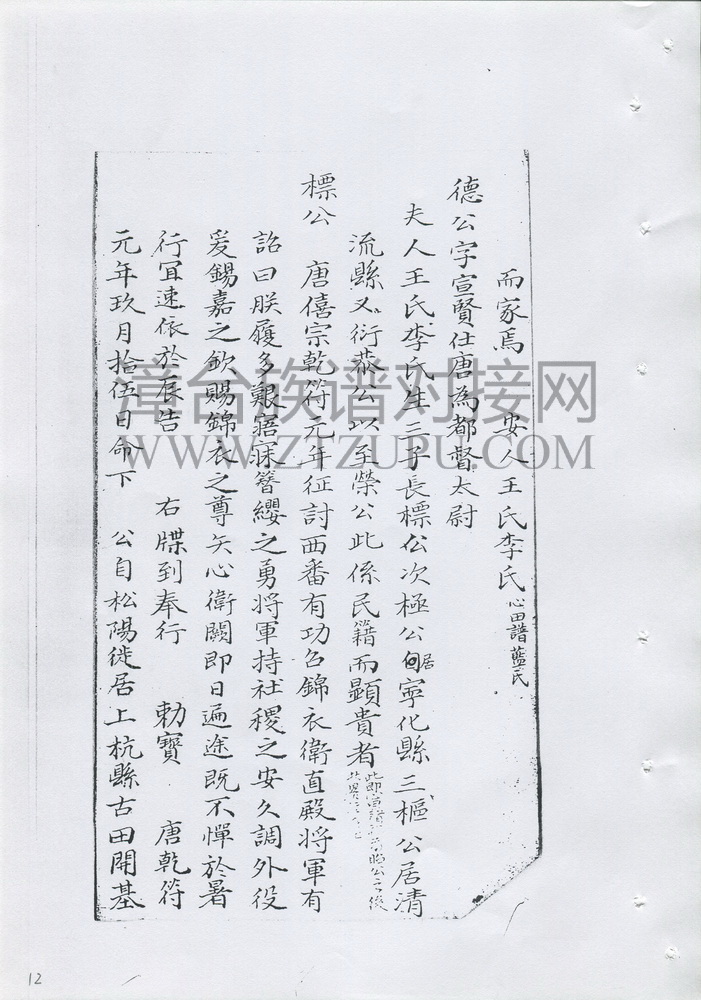 而家焉　安人王氏李氏心田譜藍氏
德公字宣賢仕唐為都督太尉
夫人王氏李氏生三子長標公次極公居寧化縣三樞公居清
流縣又衍恭公以至榮公此係民籍而顯貴者
標公　唐僖宗乾符元年征討西番有功召錦衣衛直殿將軍有
詔曰朕履多艱寤寐簪纓之勇將軍持社稷之安久調外役
爰錫嘉之欽賜錦衣之尊矢心衛闕即日遍途既不憚於暑
行宜速依於辰告　右牒到奉行　勅寶　唐乾符
元年玖月拾伍日命下　公自松陽徙居上杭縣古田開基
漳台族谱对接网
WWW.ZTZUPU.COM
12